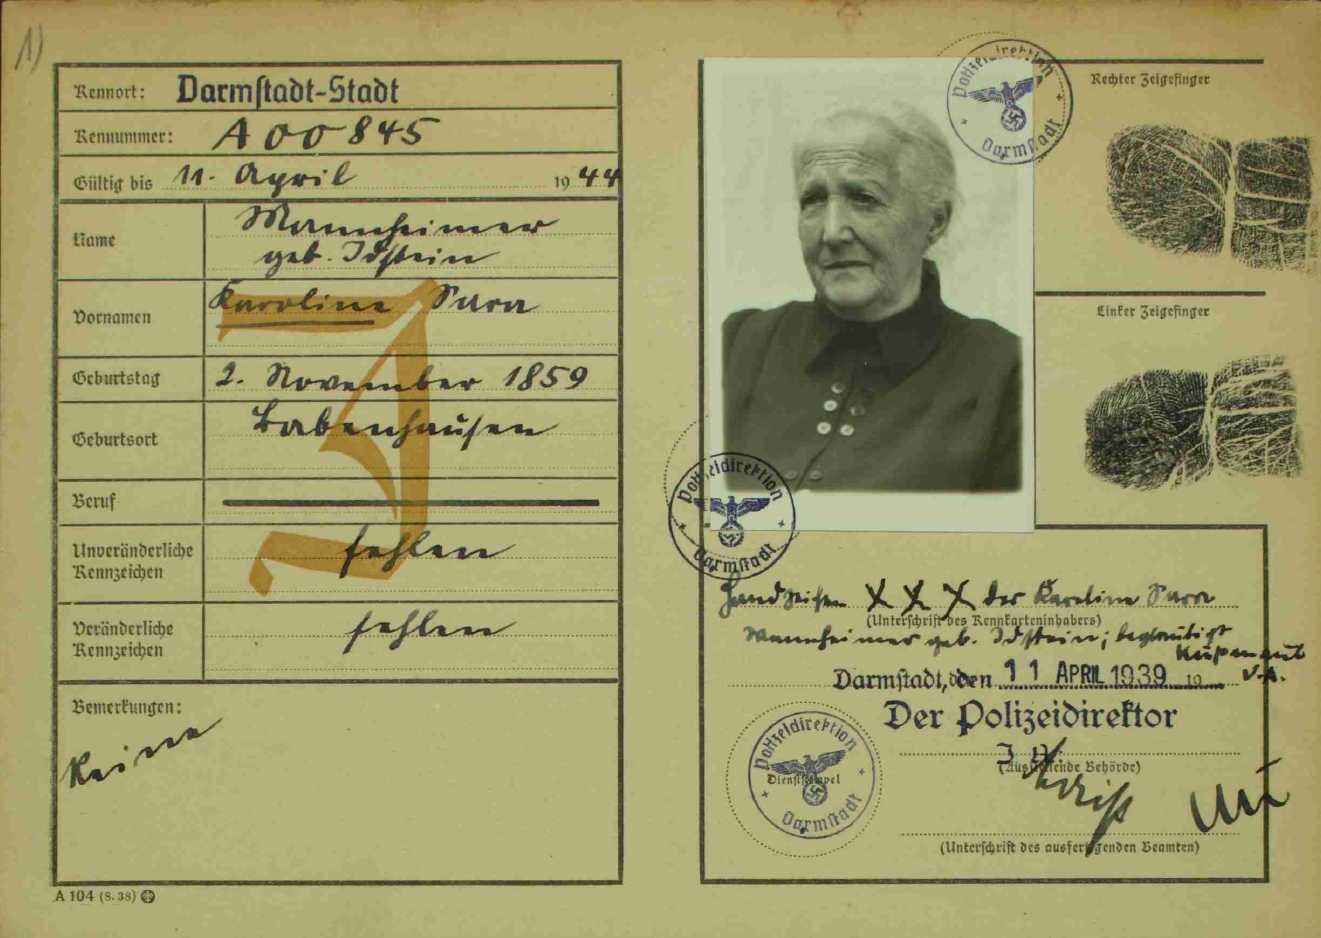 1)
Kennort: Darmstadt-Stadt
Kennummer: A 00845
Gültig bis 11. April 1944
Name Mannheimer
geb. Idstein
Vornamen Karoline Sara
J
Geburtstag 2. November 1859
Geburtsort Babenhausen
Beruf
Unveränderliche Kennzeichen fehlen
Veränderliche Kennzeichen fehlen
Bemerkungen:
Keine
A 104 (8. 38)
Polizeidirektion Darmstadt
Rechter Zeigefinger
Linker Zeigefinger
Polizeidirektion Darmstadt
Handzeichen X X X der Karoline Sara
(Unterschrift des Kennkarteninhabers)
Mannheimer geb. Idstein; beglaubigt
V.A.
Darmstadt, den 11 APRIL 1939 19
Der Polizeidirektor
(Ausstellende Behörde)
Polizeidirektion Darmstadt
Dienststempel
(Unterschrift des ausfertigenden Beamten)